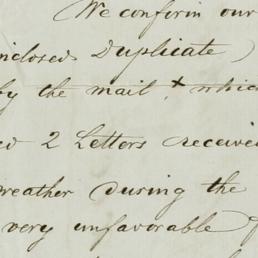 We confirm our
nclosed Duplicate)
by the mail, + which
ed 2 Letters receive
weather during the
very unfavorable f